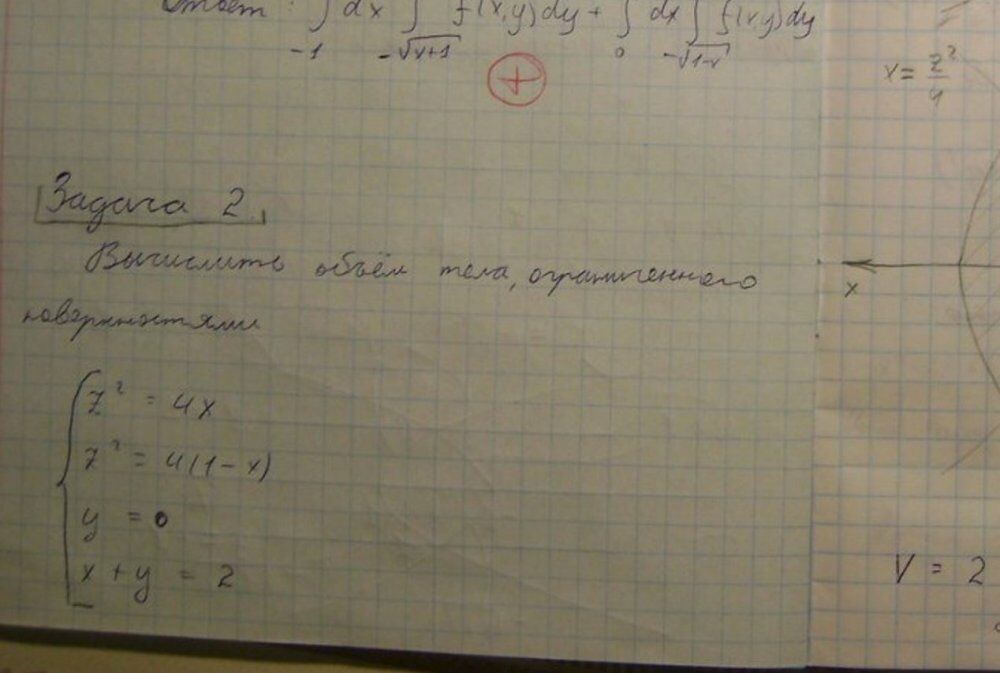 Ответ: ∫ dx ∫ f(x,y)dy + ∫ dx ∫ f(x,y)dy
-1 -√x+1 0 -√1-x
x = z²/4
Задача 2.
Вычислить объём тела, ограниченного
поверхностями
x
z² = 4x
z² = 4(1-x)
y = 0
x + y = 2
V = 2